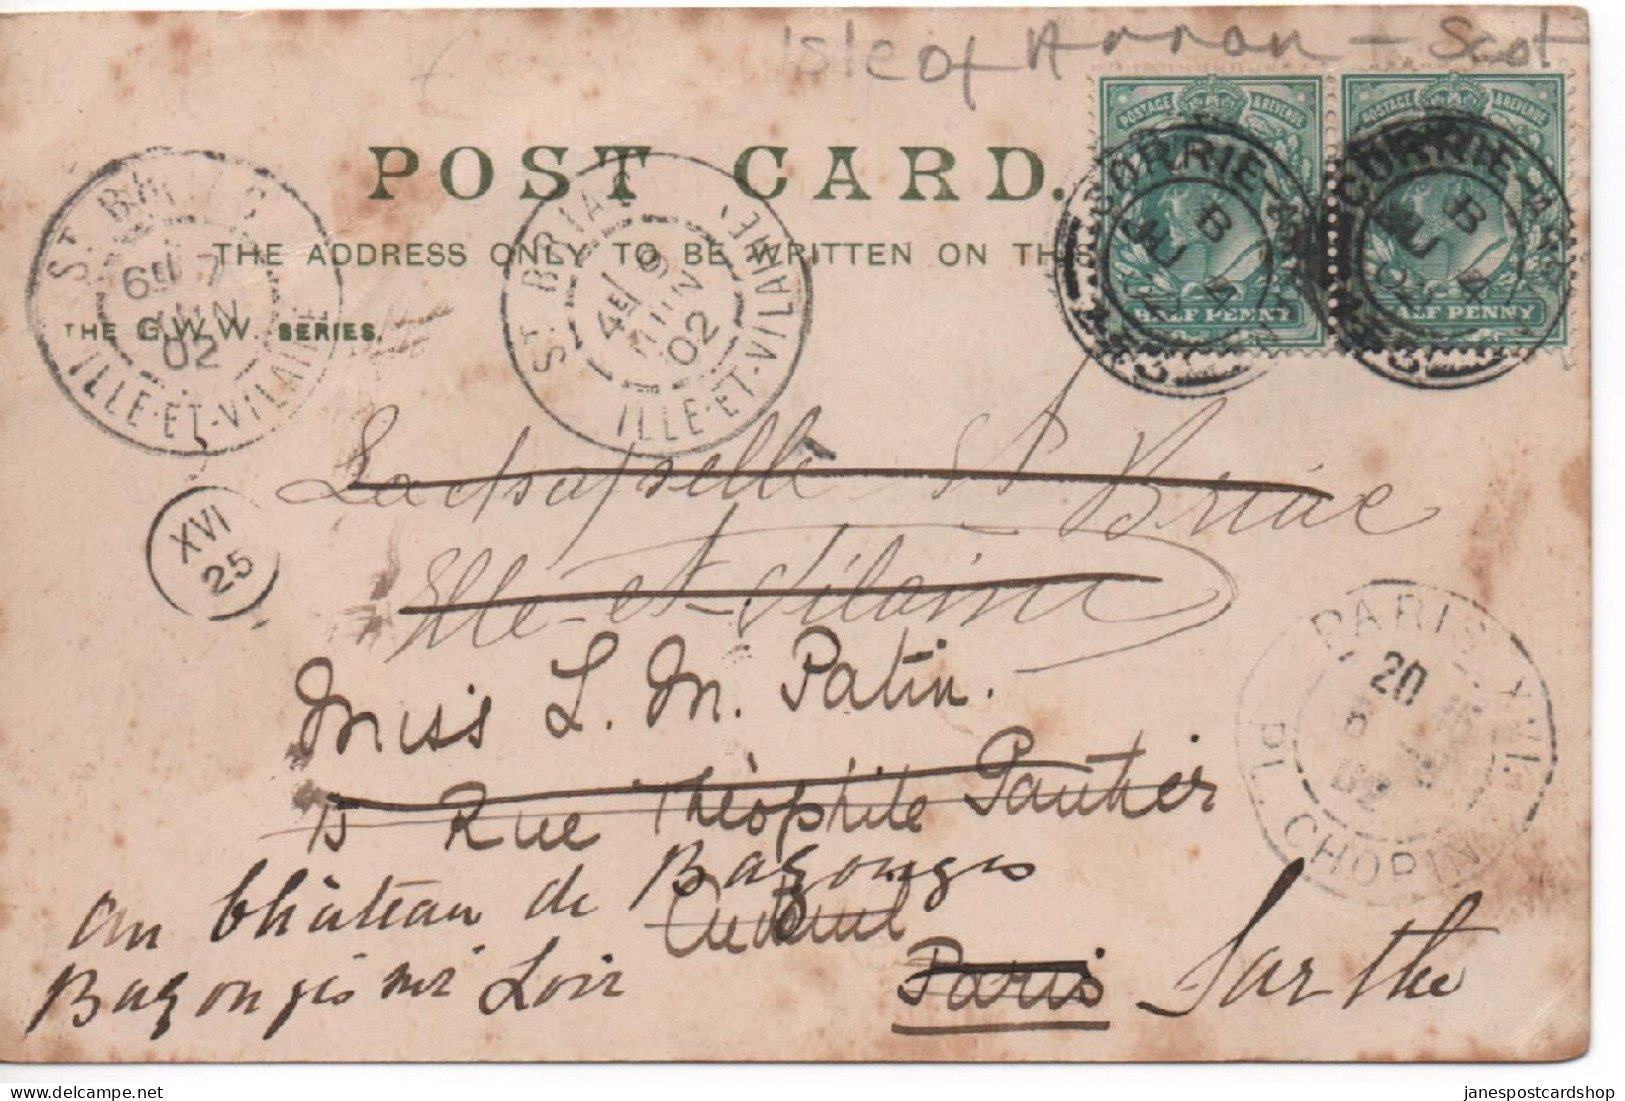 Isle of Arran - Scot
POST CARD.
POSTAGE & REVENUE
POSTAGE & REVENUE
THE ADDRESS ONLY TO BE WRITTEN ON THIS
THE G.W.W. SERIES.
HALF PENNY
HALF PENNY
CORRIE
B
JU 4
02
CORRIE
B
JU 4
02
ST BRIAC
6E 7
JUIN
02
ILLE-ET-VILAINE
ST BRIAC
4E 9
JUIN
02
ILLE-ET-VILAINE
Lachapelle St Briac
Ille-et-Vilaine
XVI
25
Miss L. M. Patin.
15 Rue Théophile Gautier
au Château de Bazouges
Auteuil
Bazouges sur Loir
Paris Sarthe
PARIS XVI
20
02
PL. CHOPIN
delcampe.net
janespostcardshop